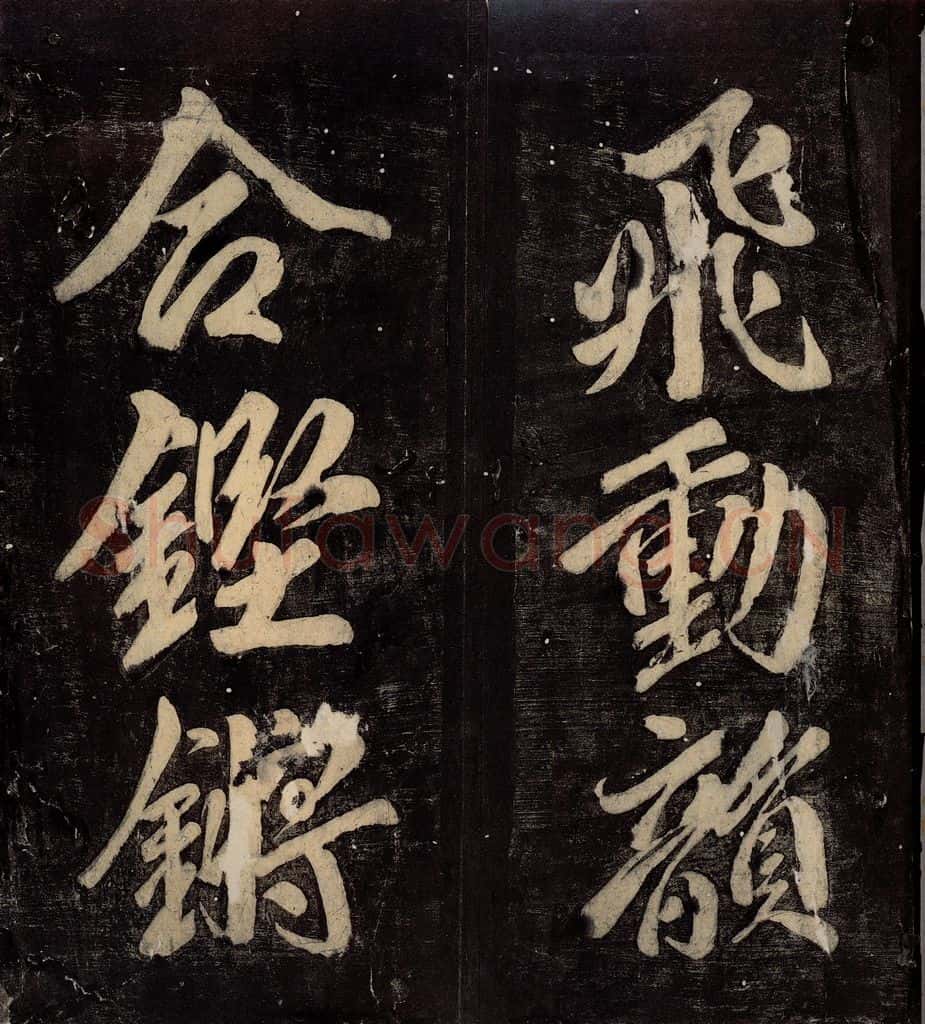 飛動韻
合鏗鏘
Shufawang.CN